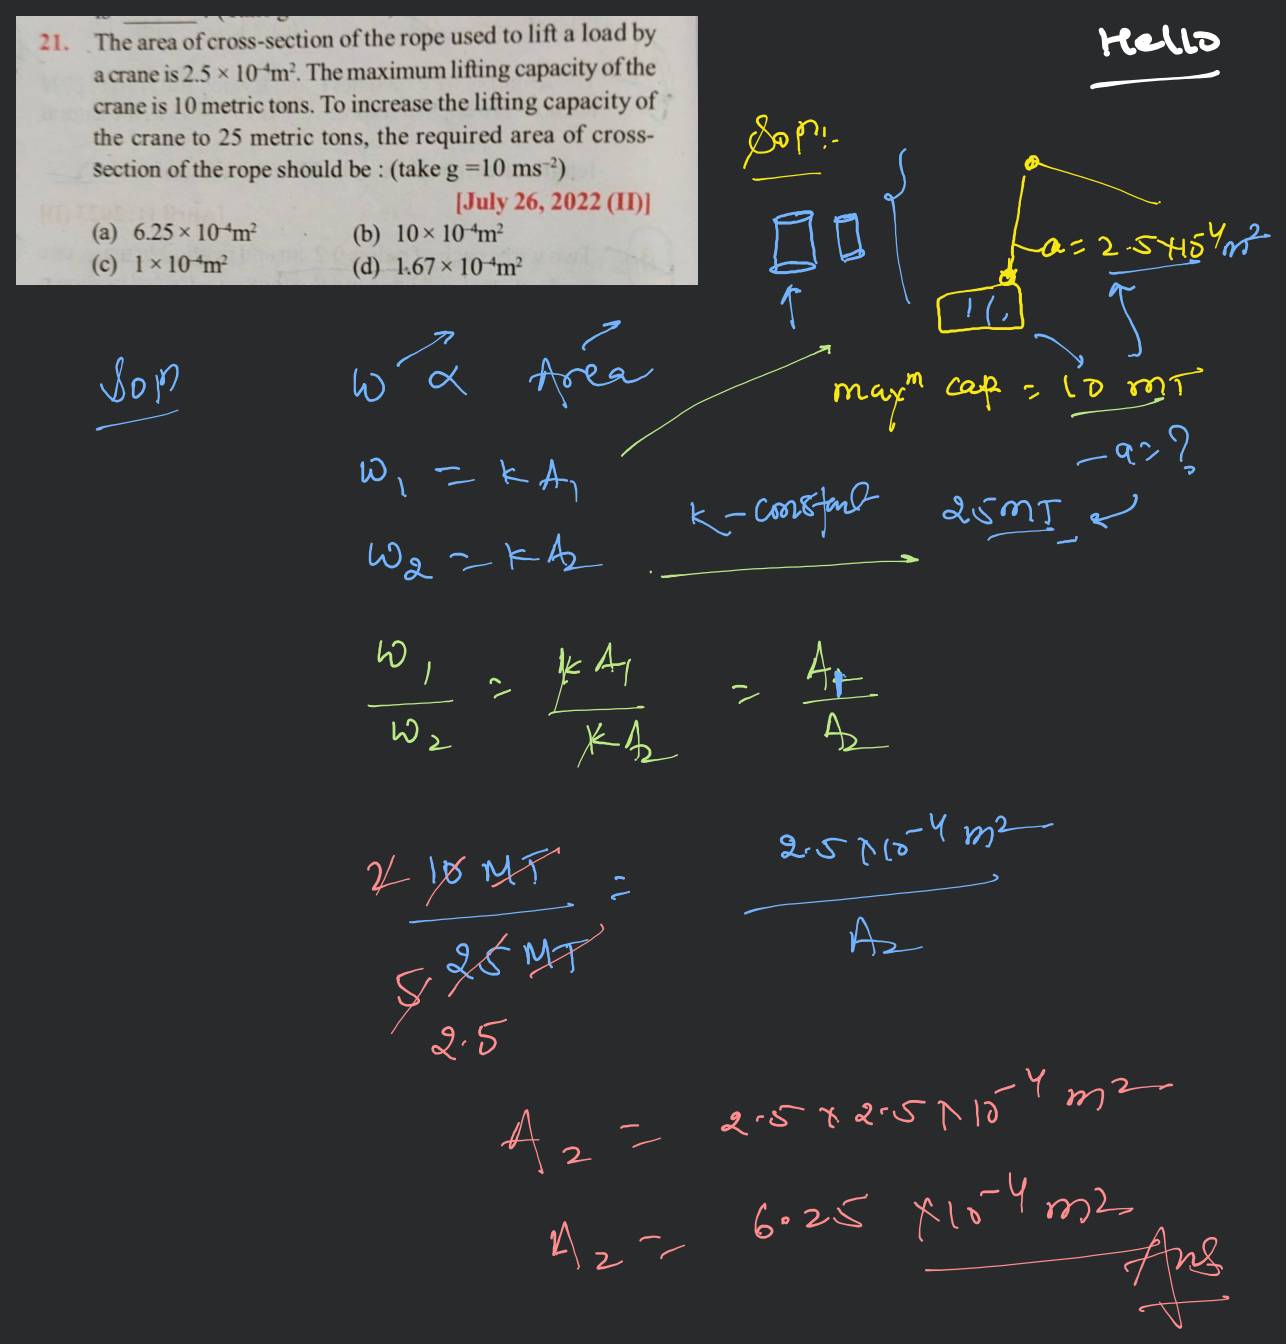 Hello
21. The area of cross-section of the rope used to lift a load by
a crane is 2.5 × 10⁻⁴m². The maximum lifting capacity of the
crane is 10 metric tons. To increase the lifting capacity of
the crane to 25 metric tons, the required area of cross-
section of the rope should be : (take g =10 ms⁻²)
[July 26, 2022 (II)]
(a) 6.25 × 10⁻⁴m² (b) 10 × 10⁻⁴m²
(c) 1 × 10⁻⁴m² (d) 1.67 × 10⁻⁴m²
Soln:
a = 2.5×10⁻⁴m²
maxᵐ cap = 10 MT
– a = ?
25 MT
Soln W ∝ Area
W₁ = k A₁
k – constant
W₂ = k A₂
W₁/W₂ = k A₁/k A₂ = A₁/A₂
2 10 MT / 5 25 MT = 2.5 × 10⁻⁴ m² / A₂
2.5
A₂ = 2.5 × 2.5 × 10⁻⁴ m²
A₂ = 6.25 × 10⁻⁴ m²
Ans